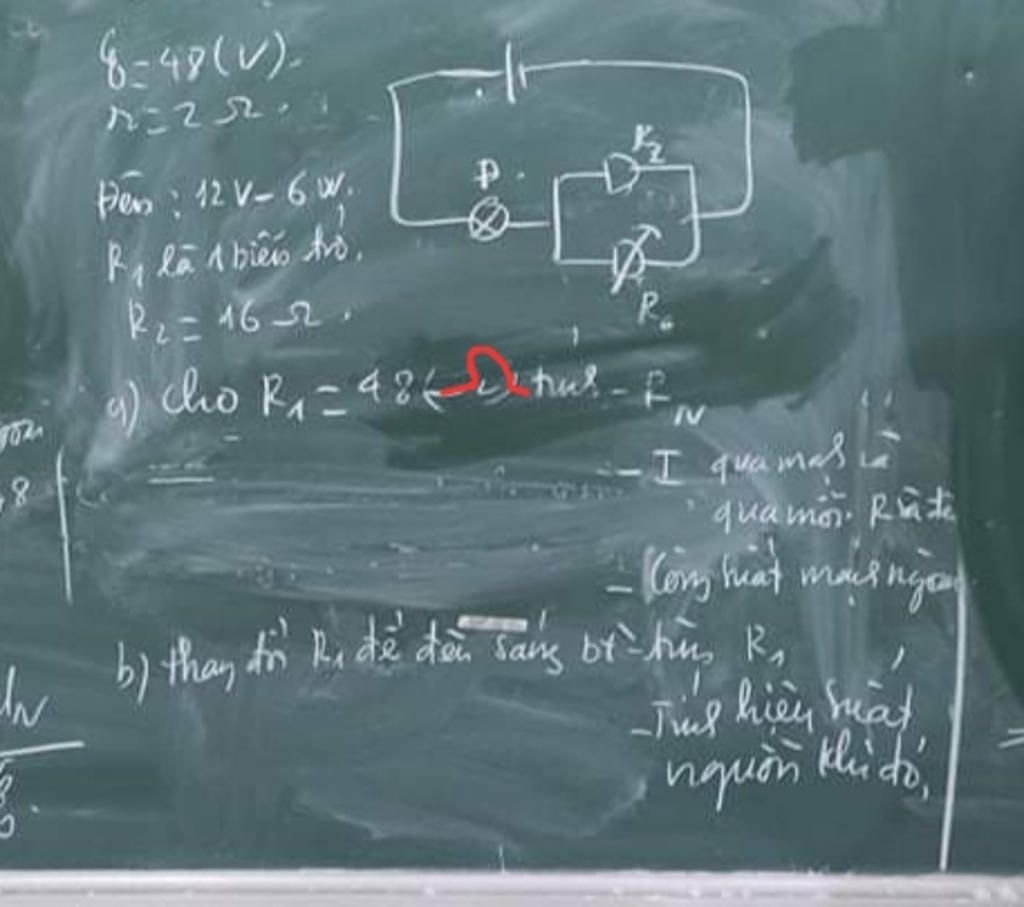 ξ = 48 (V).
r = 2 Ω.
Đèn : 12 V - 6 W.
R₁ là 1 biến trở.
R₂ = 16 Ω.
Đ
R₂
R₁
a) cho R₁ = 48 (Ω) tính - R_N
- I qua mạch và
qua mỗi R và đè
- Công suất mạch ngoài
b) thay đổi R₁ để đèn sáng bt - tìm R₁
- Tính hiệu suất
nguồn khi đó.
8
N